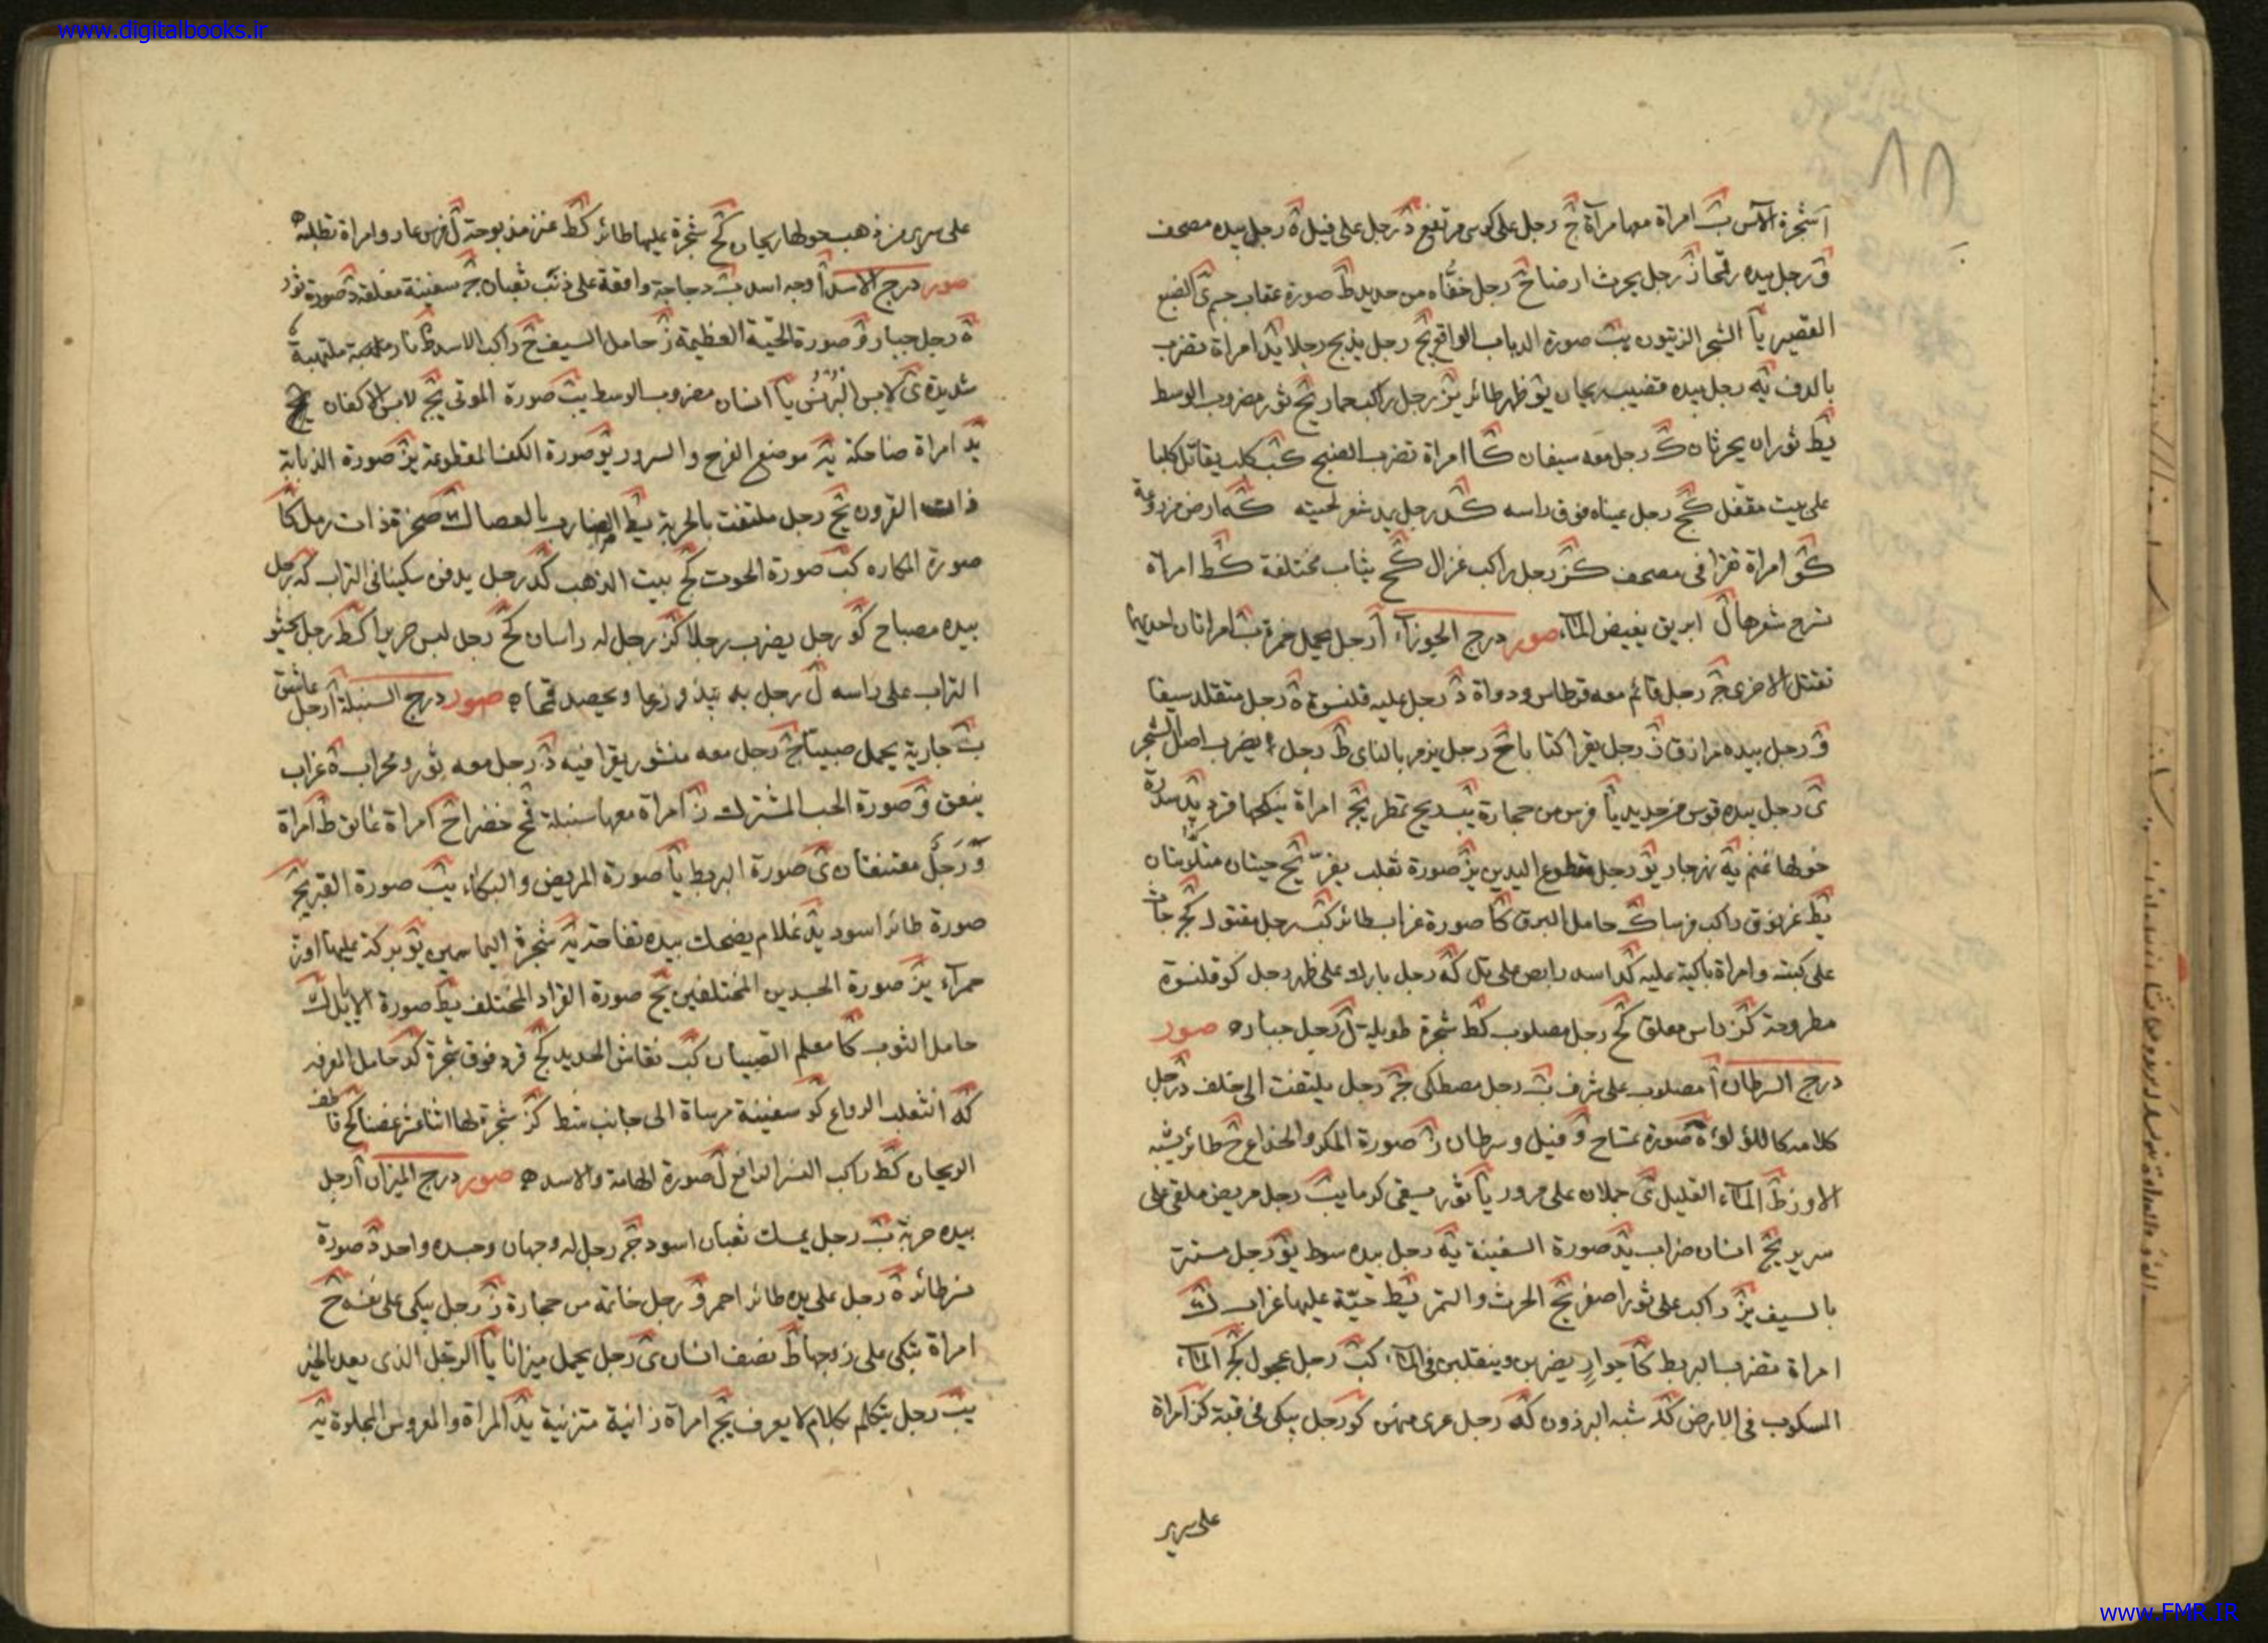 www.digitalbooks.ir
٨٨
آ شجرة الآس ب امراة معها مرآة ج رجل على كرسى مرتفع د رجل على فيل ه رجل بيده مصحف
و رجل بيده رمحا ز رجل يحرث ارضا ح رجل خفّاه من حديد ط صورة عقاب جسم ى الضبع
القصير يا الشجر الزيتون يب صورة الذباب الواقع يج رجل يذبح رجلا يد امراة تضرب
بالدف يه رجل بيده قضيب ريحان يو ظهر طائر يز رجل راكب حمار يح ثور مضروب الوسط
يط ثوران يحرثان ك رجل معه سيفان كا امراة تضرب الصنج كب كلب يقاتل كلبا
على بيت مقفل كج رجل عيناه فوق راسه كد رجل يد شعر لحيته كه ارض مزروعة
كو امراة تقرا فى مصحف كز رجل راكب غزال كح ثياب مختلفة كط امراة
تسرح شعرها ل ابريق يفيض المآء صور درج الجوزآء آ رجل يحمل خمرة ب امراتان احديهما
تقتل الاخرى ج رجل قائم معه قرطاس ودواة د رجل عليه قلنسوة ه رجل متقلد سيفا
و رجل بيده مزراق ز رجل يقرا كتابا ح رجل يزمر بالناى ط رجل يضرب اصل الشجر
ى رجل بيده قوس من حديد يا فرس من حجارة يب ريح تمطر يج امراة ينكحها قرد يد سدرة
حولها غنم يه نهر جار يو رجل مقطوع اليدين يز صورة ثعلب يفرّ يح حيتان متلونتان
يط غرنوق راكب فرسا ك حامل البرق كا صورة غراب طائر كب رجل مقتول كج جاث
على ركبته وامراة باكية عليه كد اسد رابض على تل كه رجل بارك على ظهر رجل كو قلنسوة
مطروحة كز راس معلق كح رجل مصلوب كط شجرة طويلة ل رجل جبار ه صور
درج السرطان آ مصلوب على شرف ب رجل مصطكى ج رجل يلتفت الى خلف د رجل
كلامه كاللؤلؤ ه صورة تمساح و فيل وسرطان ز صورة المكر والخداع ح طائر يشبه
الاوز ط المآء القليل ى حملان على مرور يا ثور يسقى كرما يب رجل مريض ملقى على
سرير يج انسان ضراب يد صورة السفينة يه رجل بيده سوط يو رجل مستتر
بالسيف يز راكب على ثور اصفر يح الحرث والتمر يط حيّة عليها غراب ك
امراة تضرب البربط كا جوارٍ يضربن وينقلبن فى المآء كب رجل عجول كج المآء
المسكوب فى الارض كد شبه البرذون كه رجل عرى كو رجل يبكى فى قبة كز امراة
على سرير
على سرير من ذهب حولها ريحان كح شجرة عليها طائر كط عنز مذبوحة ل فرس عار وامراة تطلبه ه
صور درج الاسد آ وجه اسد ب دجاجة واقفة على ذنب ثعبان ج سفينة معلقة د صورة ثور
ه رجل جبار و صورة الحيّة العظيمة ز حامل السيف ح راكب الاسد ط نار ملتهبة
شديدة ى لابس البُرنُس يا انسان مضروب الوسط يب صورة الموتى يج لابس الاكفان
يد امراة ضاحكة يه موضع الفرح والسرور يو صورة الكف المقطوعة يز صورة الذبابة
ذات القرون يح رجل ملتفت بالحربة يط الضارب بالعصا ك صخرة ذات رمل كا
صورة المكاره كب صورة الحوت كج بيت الذهب كد رجل يدفن سكينا فى التراب كه رجل
بيده مصباح كو رجل يضرب رجلا كز رجل له راسان كح رجل لبس حريرا كط رجل يحثو
التراب على راسه ل رجل بذر زرعا ويحصد قمحا ه صور درج السنبلة آ رجل عاشق
ب جارية تحمل صبيّا ج رجل معه منشور يقرا فيه د رجل معه ثور ومحراب ه غراب
ينعق و صورة الحب المشترك ز امراة معها سنبلة قمح خضرا ح امراة عاتق ط امراة
ورجل معتنقان ى صورة البربط يا صورة المريض والبكاء يب صورة القبر يج
صورة طائر اسود يد غلام يضحك بيده تفاحة يه شجرة الياسمين يو بركة عليها اوز
حمرآء يز صورة الجسدين المختلفين يح صورة القراد المختلف يط صورة الايل ك
حامل الثوب كا معلم الصبيان كب نقاش الحديد كج قرد فوق شجرة كد حامل المعرفه
كه الثعلب الرواغ كو سفينة مرساة الى جانب شط كز شجرة لها اثنا عشر غصنا كح قاطف
الريحان كط راكب النسر الواقع ل صورة الهامة والاسد ه صور درج الميزان آ رجل
بيده حربة ب رجل يمسك ثعبان اسود ج رجل له وجهان وجسده واحد د صورة
نسر طائر ه رجل على يده طائر احمر و رجل خاتمه من حجارة ز رجل يبكى على نفسه ح
امراة تبكى على زوجها ط نصف انسان ى رجل يحمل ميزانا يا الرجل الذى يعد بالخير
يب رجل يتكلم بكلام لا يعرف يج امراة زانية متزنية يد المراة والعروس المجلوة يه
www.FMR.IR